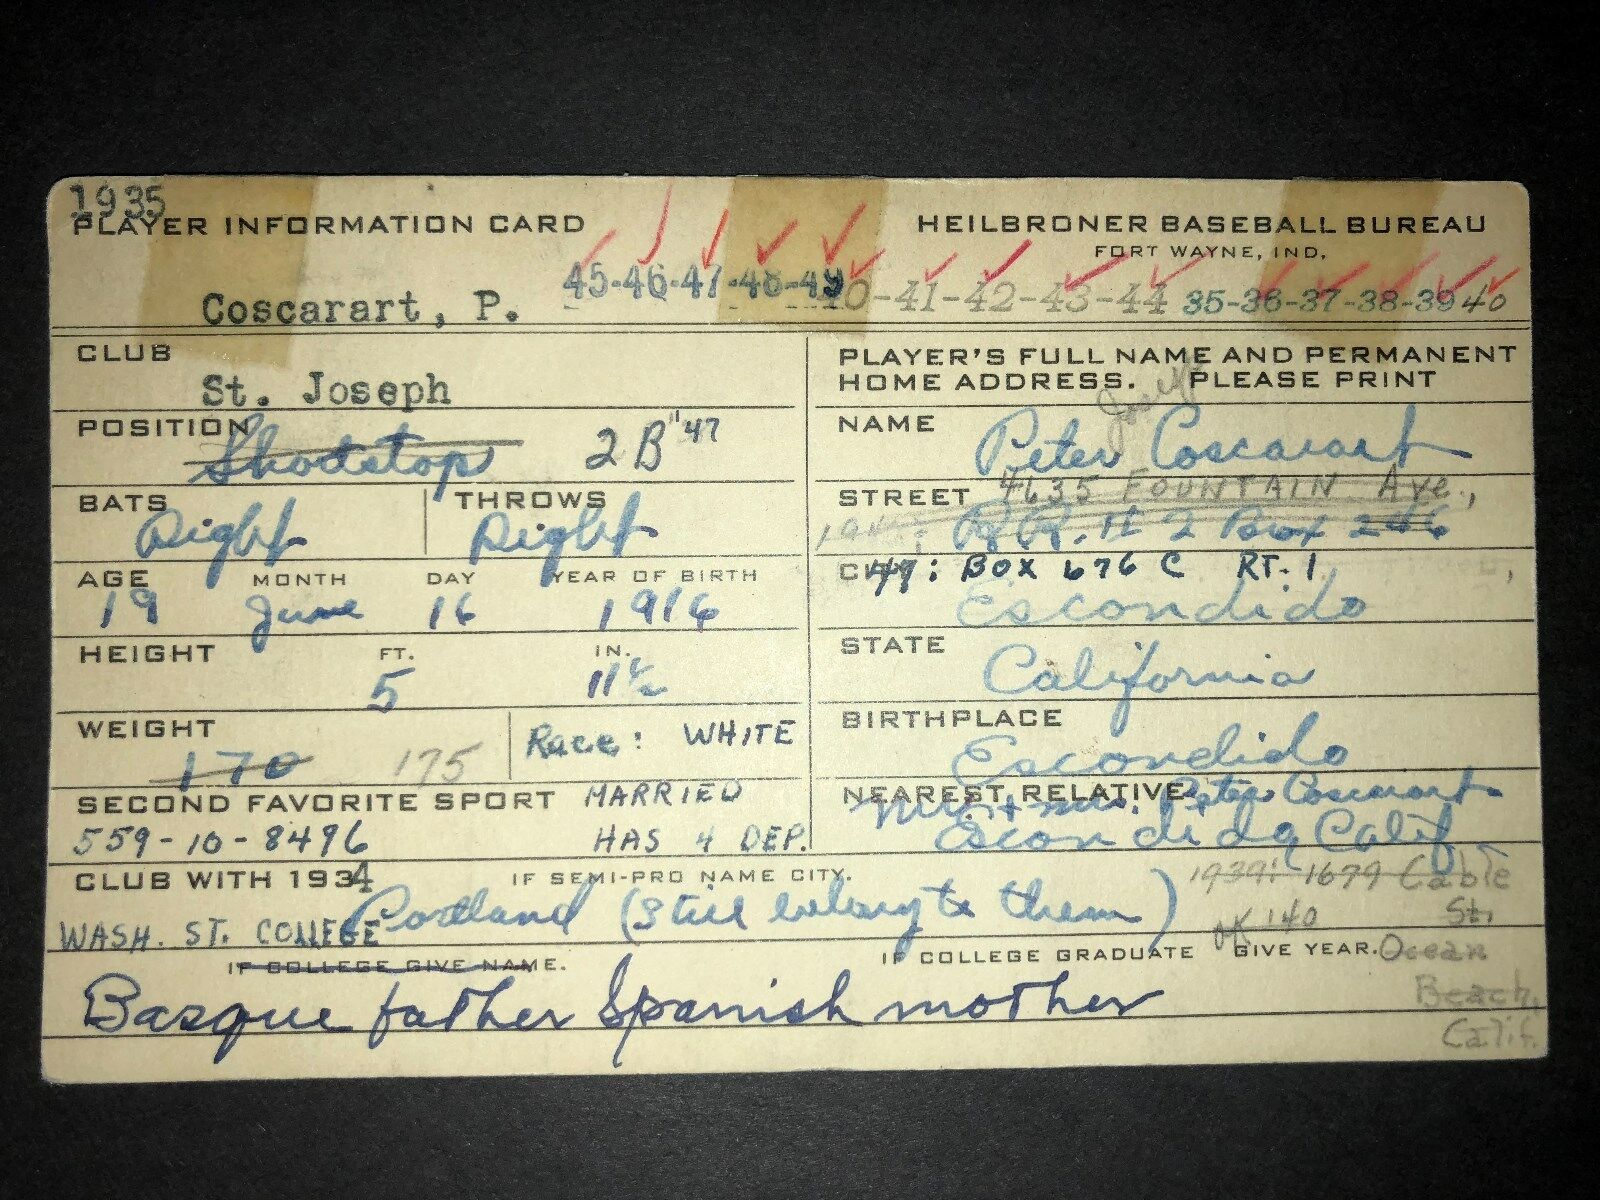 1935
PLAYER INFORMATION CARD
HEILBRONER BASEBALL BUREAU
FORT WAYNE, IND.
Coscarart, P.
45-46-47-48-49
40-41-42-43-44 35-36-37-38-39 40
CLUB
St. Joseph
POSITION
Shortstop 2B "47
BATS Right THROWS Right
AGE MONTH DAY YEAR OF BIRTH
19 June 16 1916
HEIGHT FT. IN.
5 11½
WEIGHT
170 175 Race: WHITE
SECOND FAVORITE SPORT MARRIED
559-10-8496 HAS 4 DEP.
PLAYER'S FULL NAME AND PERMANENT
HOME ADDRESS. PLEASE PRINT
Joseph
NAME Peter Coscarart
STREET 4635 FOUNTAIN Ave.,
R.R. # 2 Box 246
CITY 47: BOX 676 C RT. 1
Escondido
STATE California
BIRTHPLACE
Escondido
NEAREST RELATIVE
Mr. + Mrs. Peter Coscarart
Escondido Calif
CLUB WITH 1934 IF SEMI-PRO NAME CITY.
Portland (still belong to them)
1939: 1679 Cable
St.
Ocean
Beach,
Calif.
OK 140
WASH. ST. COLLEGE
IF COLLEGE GIVE NAME. IF COLLEGE GRADUATE GIVE YEAR.
Basque father Spanish mother